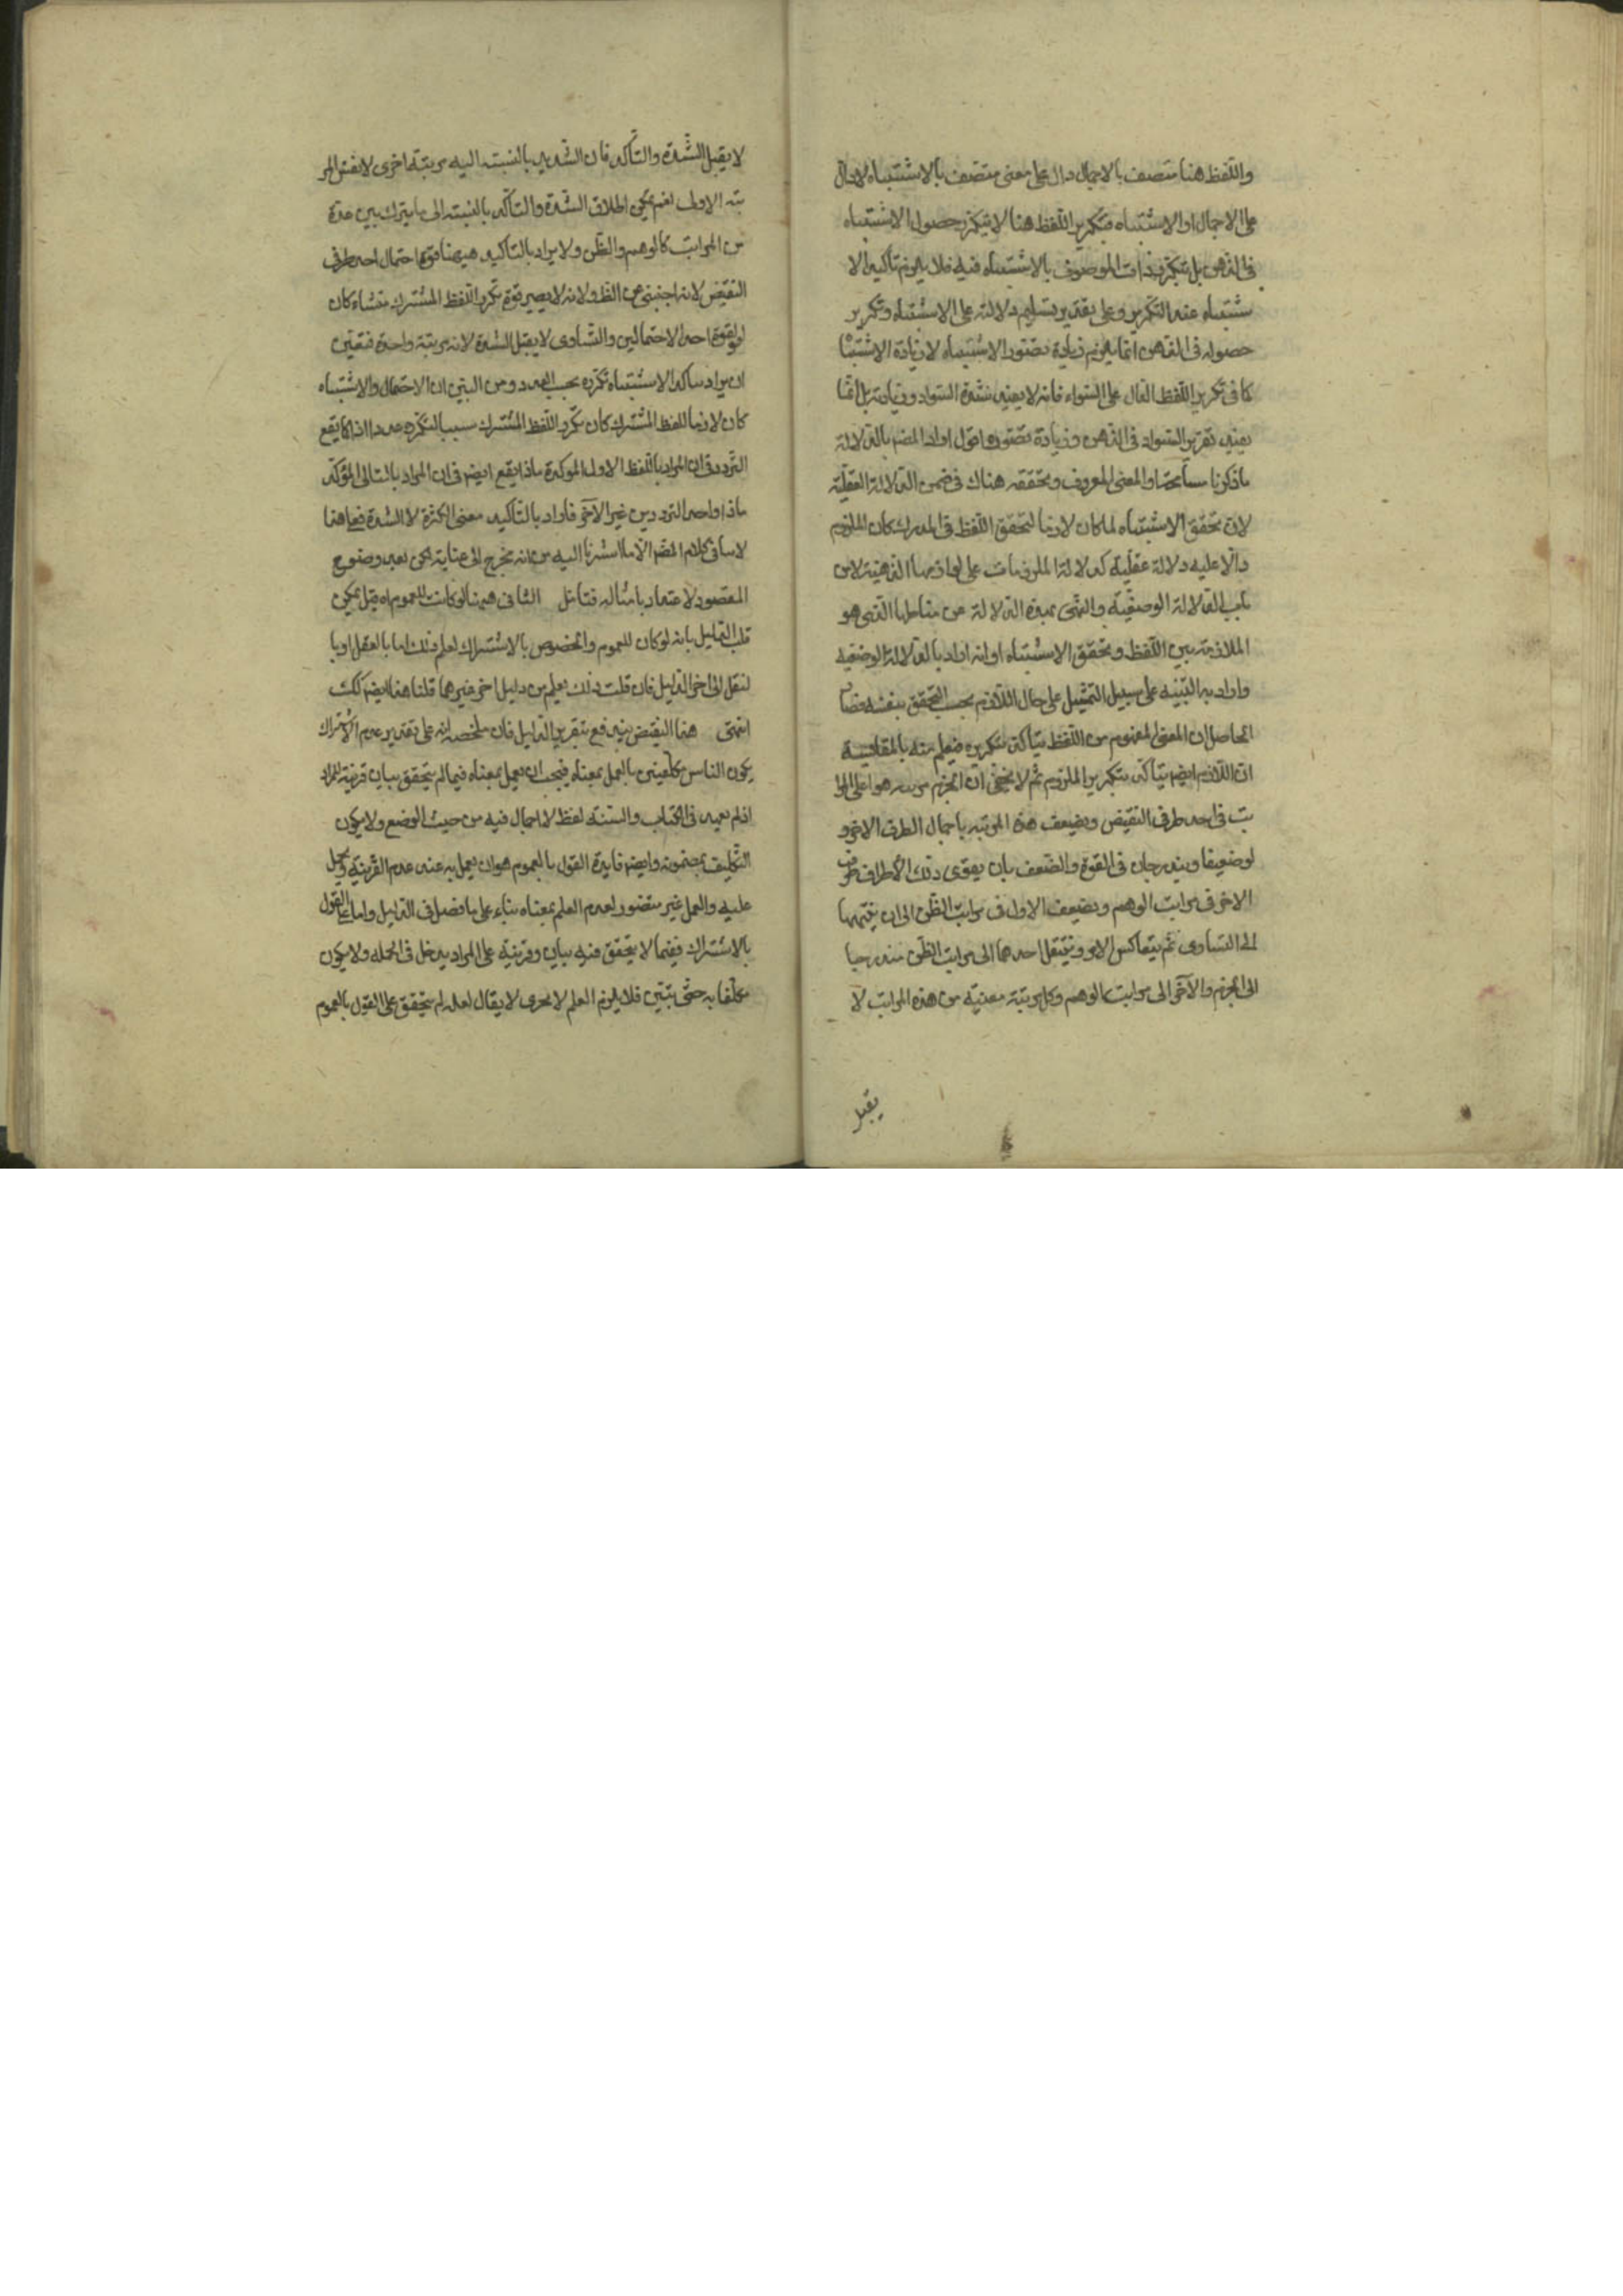 واللّفظ هنا متصف بالاجمال دال على معنى متصف بالاشتباه لا دال
على الاجمال او الاشتباه فتكرير اللّفظ هنا لا يتكرّر حصول الاشتباه
فى الذهن بل يتكرّر ذات الموصوف بالاشتباه فيه فلا يلزم تأكيد الا
شتباه عند التكرير وعلى تقدير تسليم دلالته على الاشتباه وتكرير
حصوله فى الذهن انما يلزم زيادة تصّور الاشتباه لا زيادة الاشتبا
كما فى تكرير اللّفظ الدال على السواد فانه لا يفيد شدة السواد وزيادته بل انّما
يفيد تقرير السواد فى الذهن وزيادة تصّوره اقول اراد المصم بالدلالة
ما ذكرنا مسامحة او المعنى المعروف وتحققه هناك فى ضمن الدلالة العقليّة
لان تحقق الاشتباه لما كان لازما لتحقق اللّفظ فى المدرك كان الملزوم
دالّا عليه دلالة عقليّة كدلالة الملزومات على لوازمها الذهنية لا من
باب الدلالة الوضعيّة والتمثى بهذه الدلالة عن مناطها الذى هو
الملازمة بين اللّفظ وتحقق الاشتباه او انه اراد بالدلالة الوضعية
واراد به التنبيه على سبيل التمثيل على حال اللازم بحسب التحقق بنفسه فصار
الحاصل ان المعنى المفهوم من اللّفظ يتأكّد بتكريره فيعلم منه بالمقايسة
انّ اللّازم ايضم يتأكّد بتكرير الملزوم ثم لا يخفى انّ الجزم مرتبه هو اعلى المرا
تب فى احد طرفى النقيض ويضعف هذه المرتبه باحتمال الطرف الاخر و
لو ضعيفا ويندرجان فى القوة والضعف بان يقوى ذلك الاطراف طرف
الاخر فى مراتب الوهم ويضعف الاول فى مراتب الظّن الى ان ينتهيا
الى التساوى ثم يتعاكس الامر وينتقل احدهما الى مراتب الظّن متدرجا
الى الجزم والآخر الى مراتب الوهم وكل مرتبة معنيّة من هذه المراتب لا
يقبل
لا يقبل الشّدة والتأكد فان الشّديد بالنسبته اليه مرتبة اخرى لا نفس المر
تبه الاولى لغم يمكن اطلاق الشّدة والتأكّد بالنسبته الى ما يترك بين عدة
من المراتب كالوهم والظّن ولا يراد بالتأكيد هيهنا قوّة احتمال احد طرفى
النقيض لانه اجنبى عن الظ ولانه لا يصير قوة تكرير اللّفظ المشترك منشاء كان
لقوة احد الاحتمالين والتّساوى لا يقبل الشدة لانه مرتبة واحدة فتعيّن
ان يراد بتأكد الاشتباه تكرّره بحسب العدد ومن البيّن ان الاحتمال والاشتباه
كان لازما للفظ المشترك كان تكرّر اللّفظ المشترك سببا لتكرّره عددا اذ كما يقع
التّردد فى ان المراد باللّفظ الاول الموكدة ماذا يقع ايضم فى ان المراد بالتالى المؤكّد
ماذا واحد الترددين غير الآخر فاراد بالتأكيد معنى الكثرة لا الشدة فعلى هذا
لا سافى كلام المصم الّا ما اشرنا اليه من انه يخرج الى عناية لكن بعد وضوح
المقصود لا عتماد بامثاله فتأمّل الثانى هيهنا لو كانت للعموم اه قيل يمكن
قلب التّعليل بانه لو كان للعموم والخصوص بالاشتراك لعلم ذلك اما بالعقل او با
لنقل الى اخر الدّليل فان قلت ذلك يعلم من دليل اخر غيرهما قلنا هنا ايضم كك
انتهى هذا النقيض يندفع بتقرير الدّليل فان ملخصه انه على تقدير عدم الاشتراك
يكون الناس مكلّفين بالعمل بمعناه فيجب ان يعمل بمعناه فيما لم يتحقق ببيان قرينة المراد
اذ لم يعهد فى الكتاب والسنة لفظ لا اجمال فيه من حيث الوضع ولا يكون
التكليف بمضمونه وايضم فايدة القول بالعموم هو ان يعمل به عند عدم القرينة ويحمل
عليه والعمل غير متصّور لعدم العلم بمعناه بناء على ما فصل فى الدّليل واما على القول
بالاشتراك ففيما لا يتحقق فيه بيان وقرينة على المراد يدخل فى الجمله ولا يكون
مكلّفا به حتّى يتبيّن فلا يلزم العلم لا يحرى لا يقال لعله لم يتحقق على القول بالعموم